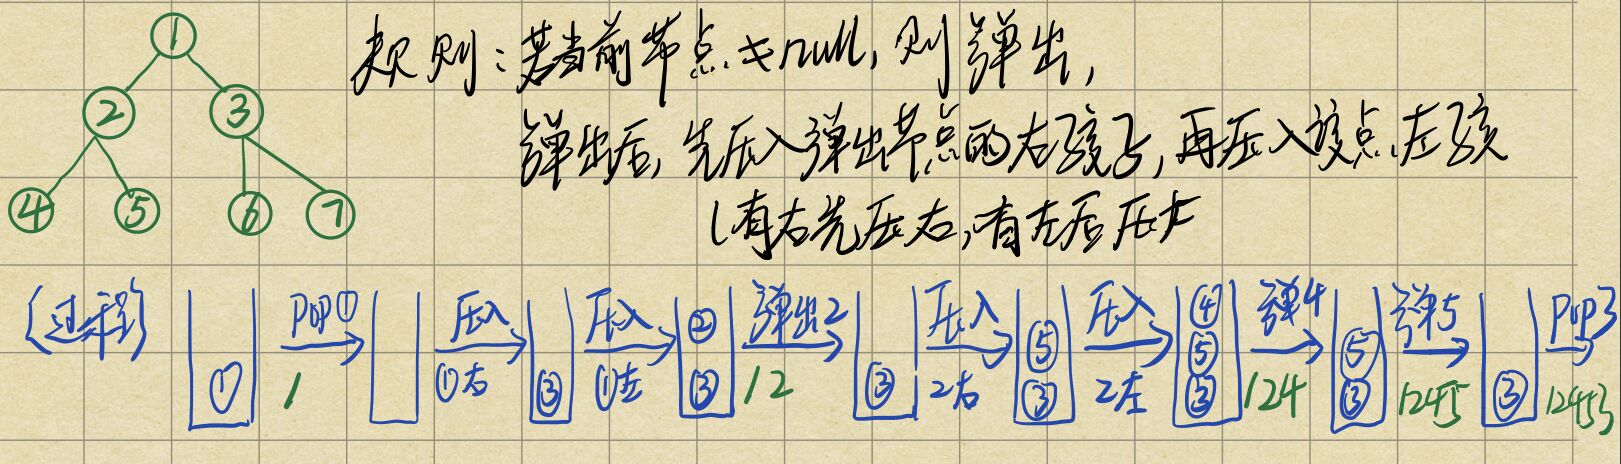 ①
② ③
④ ⑤ ⑥ ⑦
规则:若当前节点非null,则弹出,
弹出后,先压入弹出节点的右孩子,再压入该点左孩
(有右先压右,有左后压左
(过程) ① POP① 1 压入 ①右 ③ 压入 ①左 ② ③ 弹出2 12 ③ 压入 2右 ⑤ ③ 压入 2左 ④ ⑤ ③ 弹4 124 ⑤ ③ 弹5 1245 ③ POP3 12453